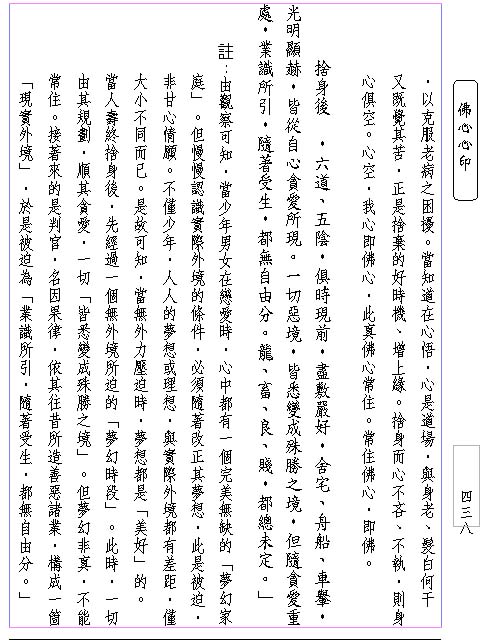 佛心心印
四三八
，以克服老病之困擾。當知道在心悟，心是道場，與身老、髮白何干
又既覺其苦，正是捨棄的好時機、增上緣。捨身而心不吝、不執，則身
心俱空。心空，我心即佛心，此真佛心常住。常住佛心，即佛。
捨身後，六道、五陰，俱時現前，盡敷嚴好，舍宅、舟船、車轝，
光明顯赫，皆從自心貪愛所現。一切惡境，皆悉變成殊勝之境，但隨貪愛重
處，業識所引，隨著受生，都無自由分。龍、畜、良、賤，都總未定。」
註：由觀察可知，當少年男女在戀愛時，心中都有一個完美無缺的「夢幻家
庭」。但慢慢認識實際外境的條件，必須隨著改正其夢想，此是被迫，
非甘心情願。不僅少年，人人的夢想或理想，與實際外境都有差距，僅
大小不同而已。是故可知，當無外力壓迫時，夢想都是「美好」的。
當人壽終捨身後，先經過一個無外境所迫的「夢幻時段」。此時，一切
由其規劃，順其貪愛，一切「皆悉變成殊勝之境」。但夢幻非真，不能
常住。接著來的是判官，名因果律，依其往昔所造善惡諸業，構成一箇
「現實外境」，於是被迫為「業識所引，隨著受生，都無自由分。」